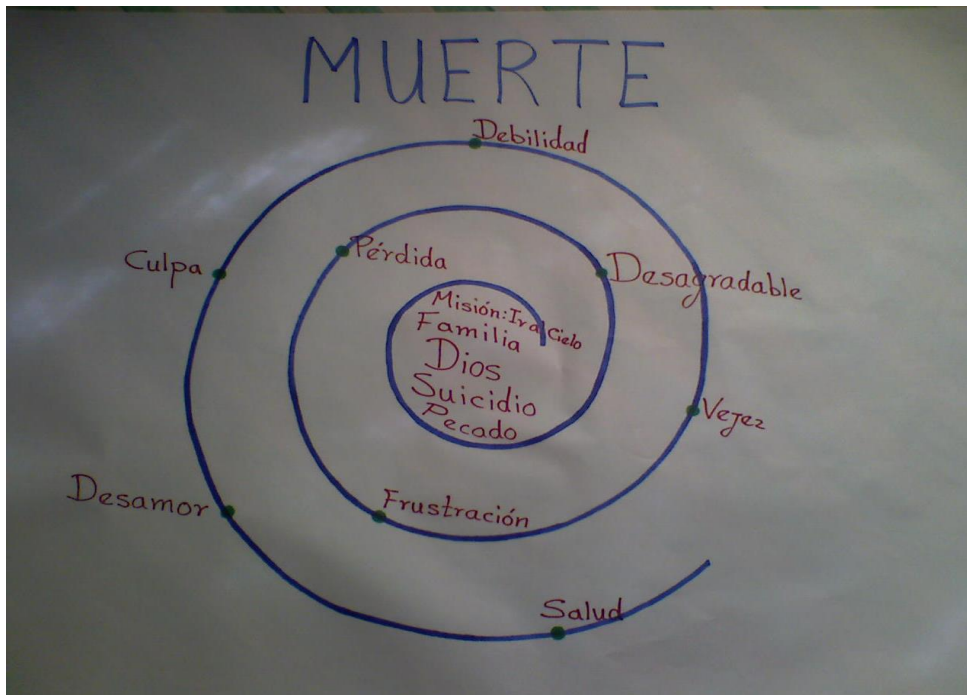 MUERTE
Debilidad
Culpa
Pérdida
Desagradable
Misión: Ir a Cielo
Familia
Dios
Suicidio
Pecado
Vejez
Desamor
Frustración
Salud